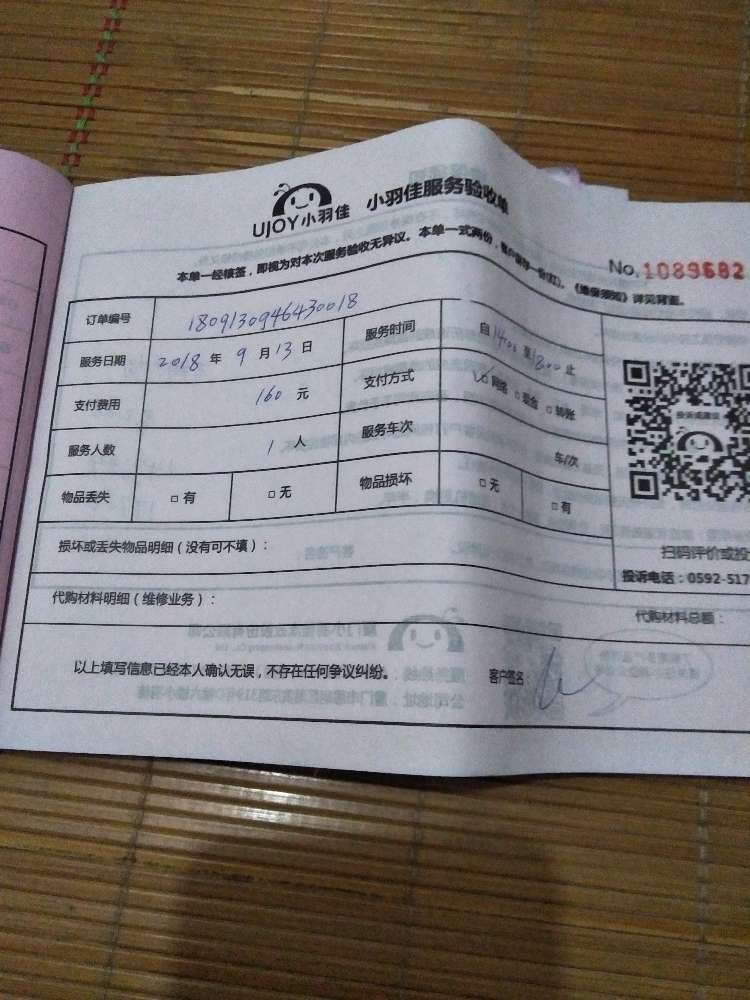 UJOY小羽佳 小羽佳服务验收单
本单一经核签，即视为对本次服务验收无异议。本单一式两份，客户保存一份(红)。《维保须知》详见背面。
No.1089682
订单编号 1809130946430018
服务日期 2018 年 9 月 13 日 服务时间 自 14:00 至 18:00 止
支付费用 160 元 支付方式 ☑网络 □现金 □转账
服务人数 1 人 服务车次 车/次
物品丢失 □有 □无 物品损坏 □无 □有
投诉或建议
扫码评价或投
投诉电话：0592-517
损坏或丢失物品明细（没有可不填）：
代购材料明细（维修业务）： 代购材料总额：
以上填写信息已经本人确认无误，不存在任何争议纠纷。 客户签名：